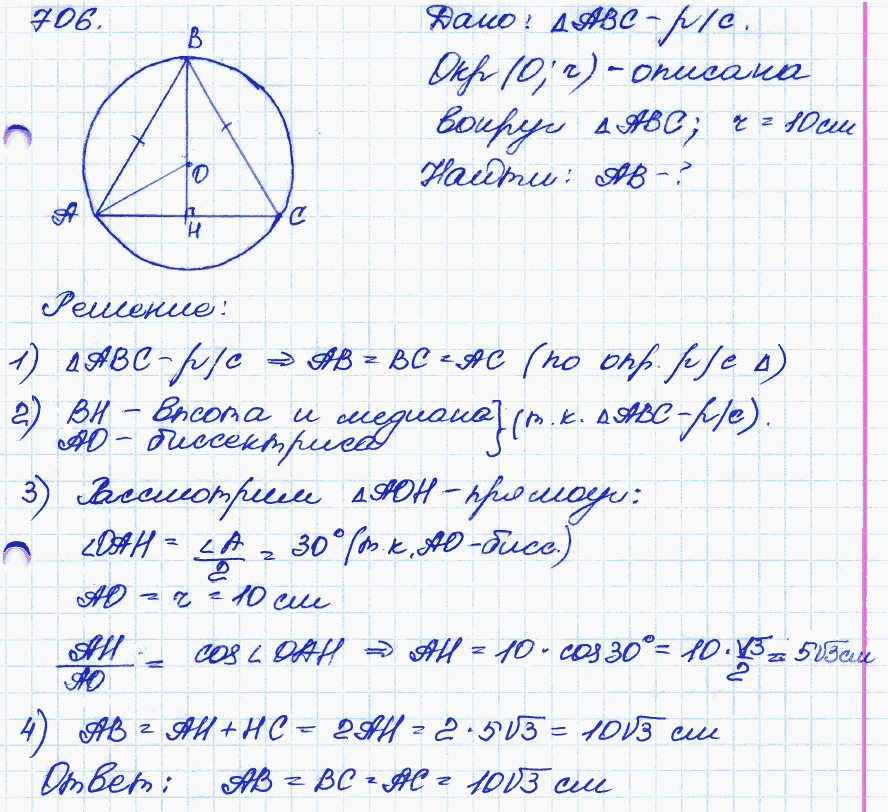 706.
Дано: △ABC - р/с.
Окр (O; r) - описана
вокруг △ABC; r = 10 см
Найти: AB - ?
B
O
A
H
C
Решение:
1) △ABC - р/с ⇒ AB = BC = AC (по опр. р/с △)
2) BH - высота и медиана } (т.к. △ABC - р/с).
AO - биссектриса
3) Рассмотрим △AOH - прямоуг:
∠OAH = ∠A/2 = 30° (т.к. AO - бисс.)
AO = r = 10 см
AH/AO = cos∠OAH ⇒ AH = 10 · cos30° = 10 · √3/2 = 5√3 см
4) AB = AH + HC = 2AH = 2 · 5√3 = 10√3 см
Ответ: AB = BC = AC = 10√3 см